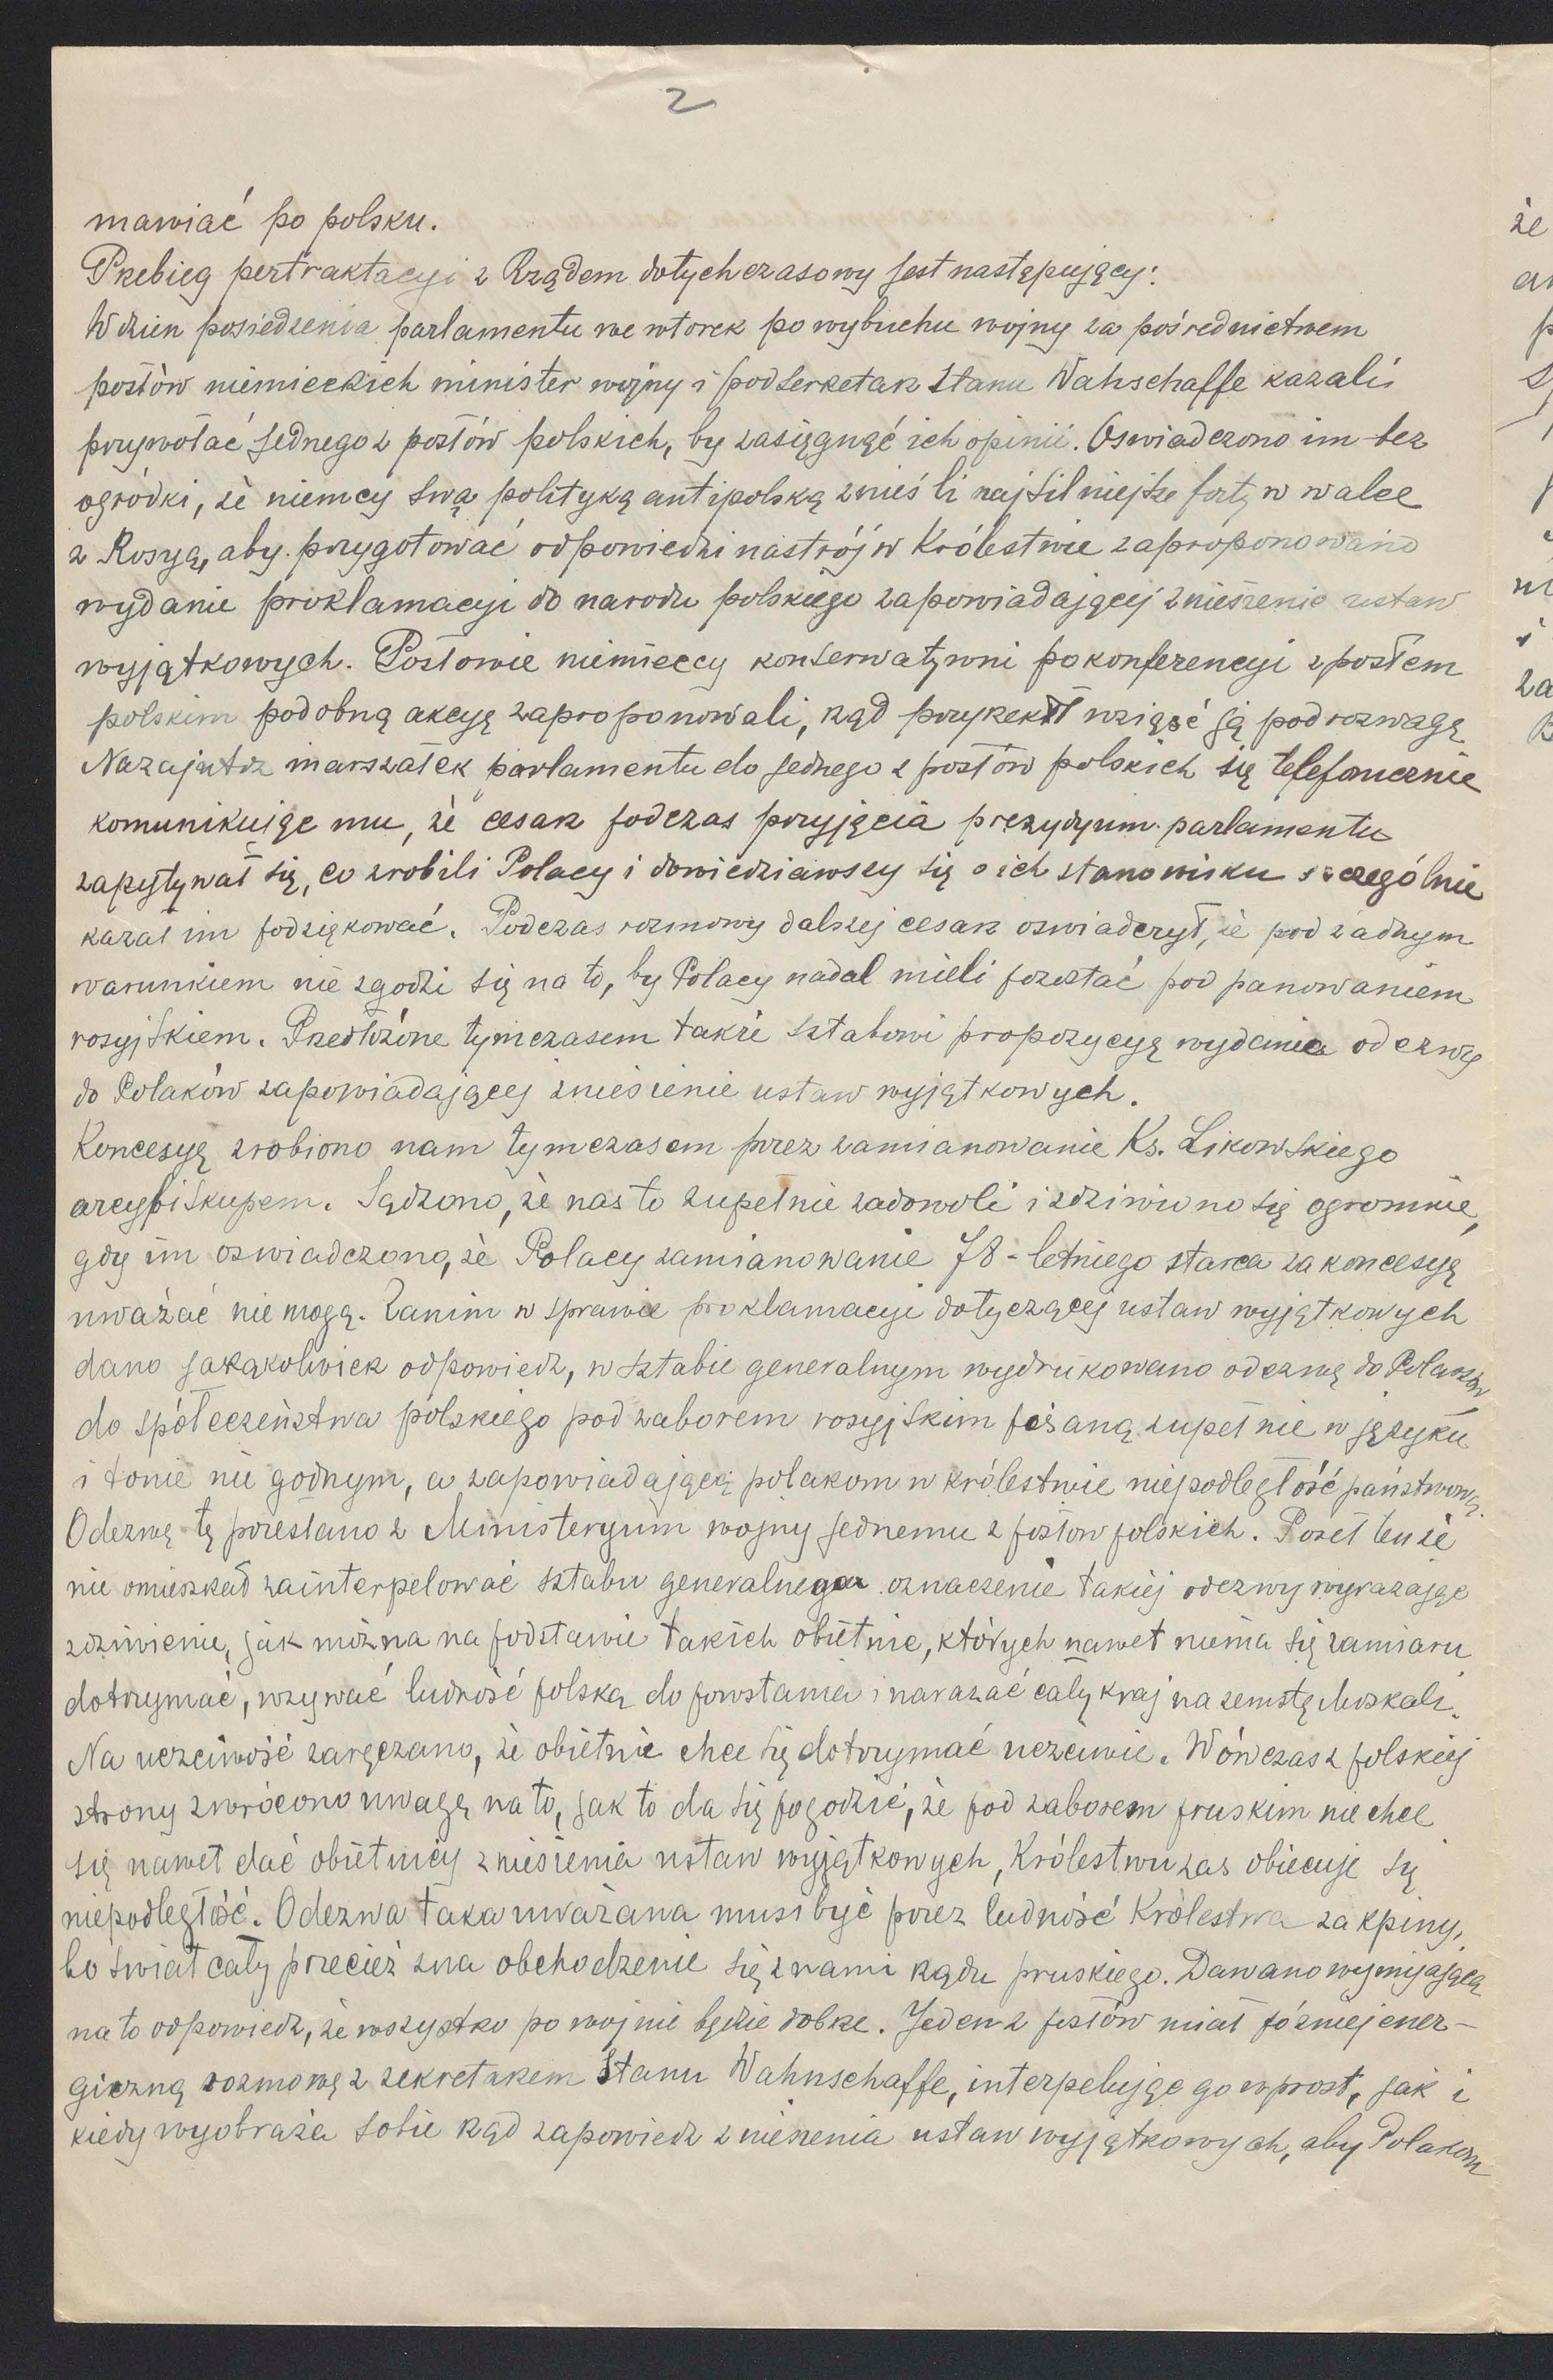 2
mawiać po polsku.
Przebieg pertraktacyi z Rządem dotychczasowy jest następujący:
W dzien posiedzenia parlamentu we wtorek po wybuchu wojny za pośrednictwem
posłów niemieckich minister wojny i podserketarz stanu Wahschaffe kazali
przywołać jednego z posłów polskich, by zasięgnąć ich opinii. Oswiadczono im bez
ogródki, że niemcy swą polityką antipolską znieśli najsilniejsze forty w walce
z Rosyą, aby przygotować odpowiedni nastrój w Królestwie zaproponowano
wydanie proklamacyi do narodu polskiego zapowiadającej zniesienie ustaw
wyjątkowych. Posłowie niemieccy konserwatywni po konferencyi z posłem
polskim podobną akcyę zaproponowali, rząd przyrzekł wziąść ją pod rozwagę
Nazajutrz marszałek parlamentu do jednego z posłów polskich się telefonicznie
komunikując mu, że cesarz podczas przyjęcia prezydyum parlamentu
zapytywał się, co zrobili Polacy i dowiedziawszy się o ich stanowisku szczególnie
kazał im podziękować. Podczas rozmowy dalszej cesarz oswiadczył, że pod żadnym
warunkiem nie zgodzi się na to, by Polacy nadal mieli pozostać pod panowaniem
rosyjskiem. Przedłożone tymczasem także sztabowi propozycyę wydania odezwy
do Polaków zapowiadającej zniesienie ustaw wyjątkowych.
Koncesyę zrobiono nam tymczasem przez zamianowanie Ks. Likowskiego
arcybiskupem. Sądzono, że nas to zupełnie zadowoli i zdziwiono się ogromnie,
gdy im oswiadczono, że Polacy zamianowanie 78-letniego starca za koncesyę
uważać nie mogą. Zanim w sprawie proklamacyi dotyczącej ustaw wyjątkowych
dano jakąkolwiek odpowiedz, w sztabie generalnym wydrukowano odezwę do Polaków
do społeczeństwa polskiego pod zaborem rosyjskim pisaną zupełnie w języku
i tonie nie godnym, a zapowiadającą polakom w królestwie niepodległość państwową.
Odezwę tę przesłano z Ministeryum wojny jednemu z posłow polskich. Poseł tenże
nie omieszkał zainterpelować sztabu generalnego oznaczenie takiej odezwy wyrażając
zdziwienie, jak można na podstawie takich obietnic, których nawet niema się zamiaru
dotrzymać, wzywać ludność polską do powstania i narażać cały kraj na zemstę Moskali.
Na uczciwość zaręczano, że obietnic chce się dotrzymać uczciwie. Wówczas z polskiej
strony zwrócono uwagę na to, jak to da się pogodzić, że pod zaborem pruskim nie chce
się nawet dać obietnicy zniesienia ustaw wyjątkowych, Królestwu zas obiecuje się
niepodległość. Odezwa taka uważana musi być przez ludność Królestwa za kpiny,
bo swiat cały przecież zna obchodzenie się z nami rządu pruskiego. Dawano wymijającą
na to odpowiedz, że wszystko po wojnie będzie dobrze. Jeden z posłów miał pózniej ener-
giczną rozmowę z sekretarzem stanu Wahnschaffe, interpelując go wprost, jak i
kiedy wyobraża sobie rząd zapowiedz zniesienia ustaw wyjątkowych, aby Polakom
że
ni
i
za